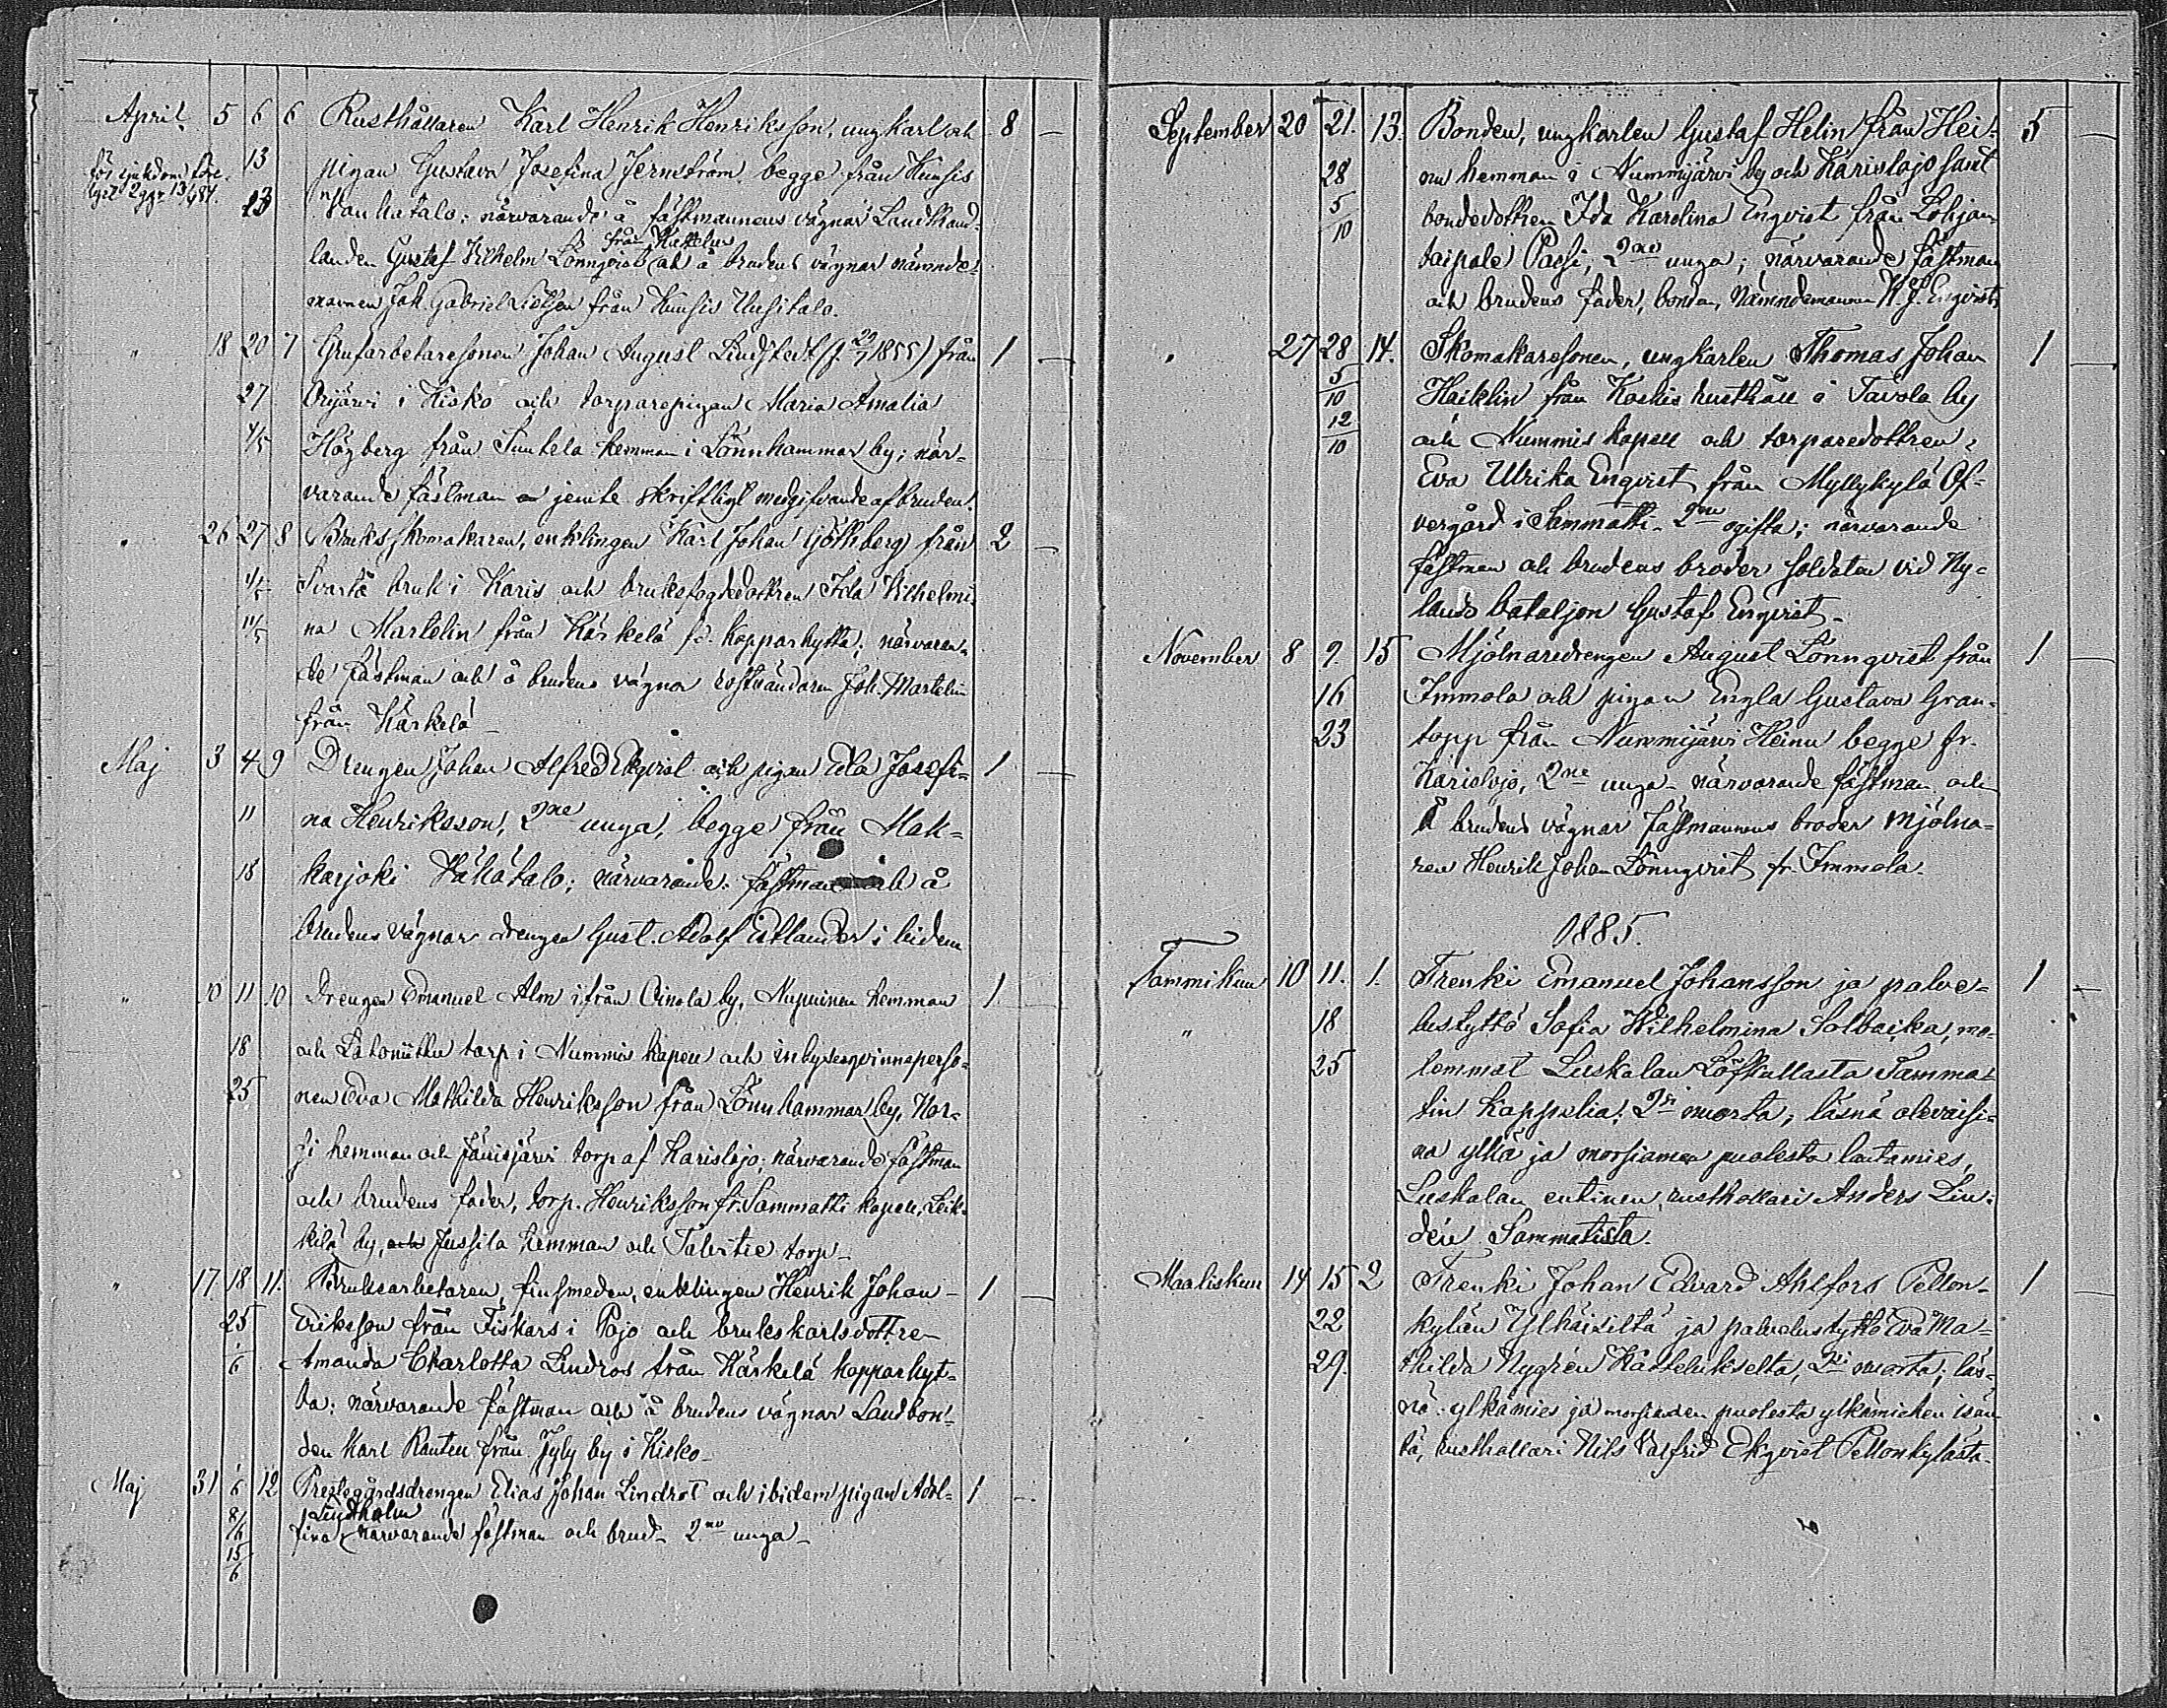 April 5 6 6 Rusthållaren Karl Henrik Henriksson, ungkarl och 8 —
för sjukdom före- 13 pigan Gustava Josefina Jernström begge från Kuusis
lyst 2 ggr 13/4 84. 23 Vanhatalo; närvarande å fästmannens vägnar Landthand-
från Kattelus
landen Gustaf Wilhelm Lönnqvist och å brudens vägnar nämnde-
mannen Joh. Gabriel från Kuusis Uusitalo.
" 18 20 7 Grufarbetaresonen Johan August Lindstedt (f. 29/7 1855) från 1 —
27 Orijärvi i Kisko och torparepigan Maria Amalia
4/5 Högberg från Suntela hemman i Lönnhammar by; när-
varande fästman jemte skriftligt medgifvande af bruden.
" 26 27 8 Bruksskomakaren, enklingen Karl Johan Göthberg från 2 —
4/5 Svartå bruk i Karis och bruksfogdedottren Ida Wilhelmi-
11/5 na Martelin från Kärkelä fd. kopparhytta; närvaran-
de fästman och å brudens vägnar Joh. Martelin
från Kärkelä
Maj 3 4 9 Drengen Johan Alfred Ekqvist och pigan Eda Josefi- 1 —
11 na Henriksson, 2ne unga, begge från Mak-
18 karjoki Vähätalo; närvarande: fästman och å
brudens vägnar drengen Gust. Adolf Estlander ibidem
" 10 11 10 Drengen Emanuel Alm ifrån Oinola by, Nupuinen hemman 1
18 och Latoniittu torp i Nummis kapell och inhysesqvinnsperso-
25 nen Eva Mathilda Henriksson från Lönnhammar by, Kor-
hemman och Jänisjärvi torp af Karislojo; närvarande fästman
och brudens fader, torp. Henriksson fr. Sammatti kapell, Leik-
kilä by, och Jussila hemman och Talvitie torp—
" 17 18 11. Bruksarbetaren, finsmeden, enklingen Henrik Johan 1 —
25 Eriksson från Fiskars i Pojo och brukskarlsdottren
1/6 Amanda Charlotta Lindros från Kärkelä kopparhyt-
ta; närvarande fästman och å brudens vägnar Landbon-
den Karl Ranten från Jyly by i Kisko—
Maj 31 1/6 12 Prestegårdsdrengen Elias Johan Lindrot och ibidem pigan Adol- 1 —
8/6 Lindholm
15/6 fina närvarande fästman och brud— 2ne unga—
September 20 21. 13. Bonden, ungkarlen Gustaf Helin från Hei- 5 —
28 nu hemman i Nummijärvi by och Karislojo samt
5/10 bondedottren Ida Karolina Enqvist från Lohjan-
taipale Paesi, 2ne unga; närvarande fästman
och brudens fader, bonden, Nämndemannen K. J. Enqvist
" 27 28 14. Skomakaresonen, ungkarlen Thomas Johan 1 —
5/10 Haiklin från Koskis rusthåll i Tavola by
12/10 och Nummis kapell och torparedottren
Eva Ulrika Enqvist från Myllykylä Öf-
vergård i Sammatti— 2ne ogifta; närvarande
fästman och brudens broder soldaten vid Ny-
lands bataljon Gustaf Enqvist—
November 8 9. 15 Mjölnaredrengen August Lönnqvist från 1 —
16 Immola och pigan Engla Gustava Gran-
23 topp från Nummijärvi Heinu begge fr.
Karislojo, 2ne unga— närvarande fästman och
å brudens vägnar fästmannens broder mjölna-
ren Henrik Johan Lönnqvist fr. Immola.
1885.
Tammikuu 10 11. 1. Trenki Emanuel Johansson ja palve- 1 —
" 18 lustyttö Sofia Wilhelmina Solbacka, mo-
25 lemmat Luskalan Löfkullasta Samma-
tin kappelia. 2si nuorta; läsnä olevaisi-
na ylkä ja morsiamen puolesta lautamies,
Luskalan entinen rusthollari Anders Lin-
dén Sammatista.
Maaliskuu 14 15 2 Trenki Johan Edvard Ahlfors Pellon- 1 —
22 kylän Ylhäisiltä ja palvelustyttö Eva Ma-
29. thilda Nygrén Kattelukselta, 2si nuorta; läs-
nä: ylkämies ja morsianden puolesta ylkämiehen isän-
tä, rusthollari Nils Valfrid Ekqvist Pellonkylästä—